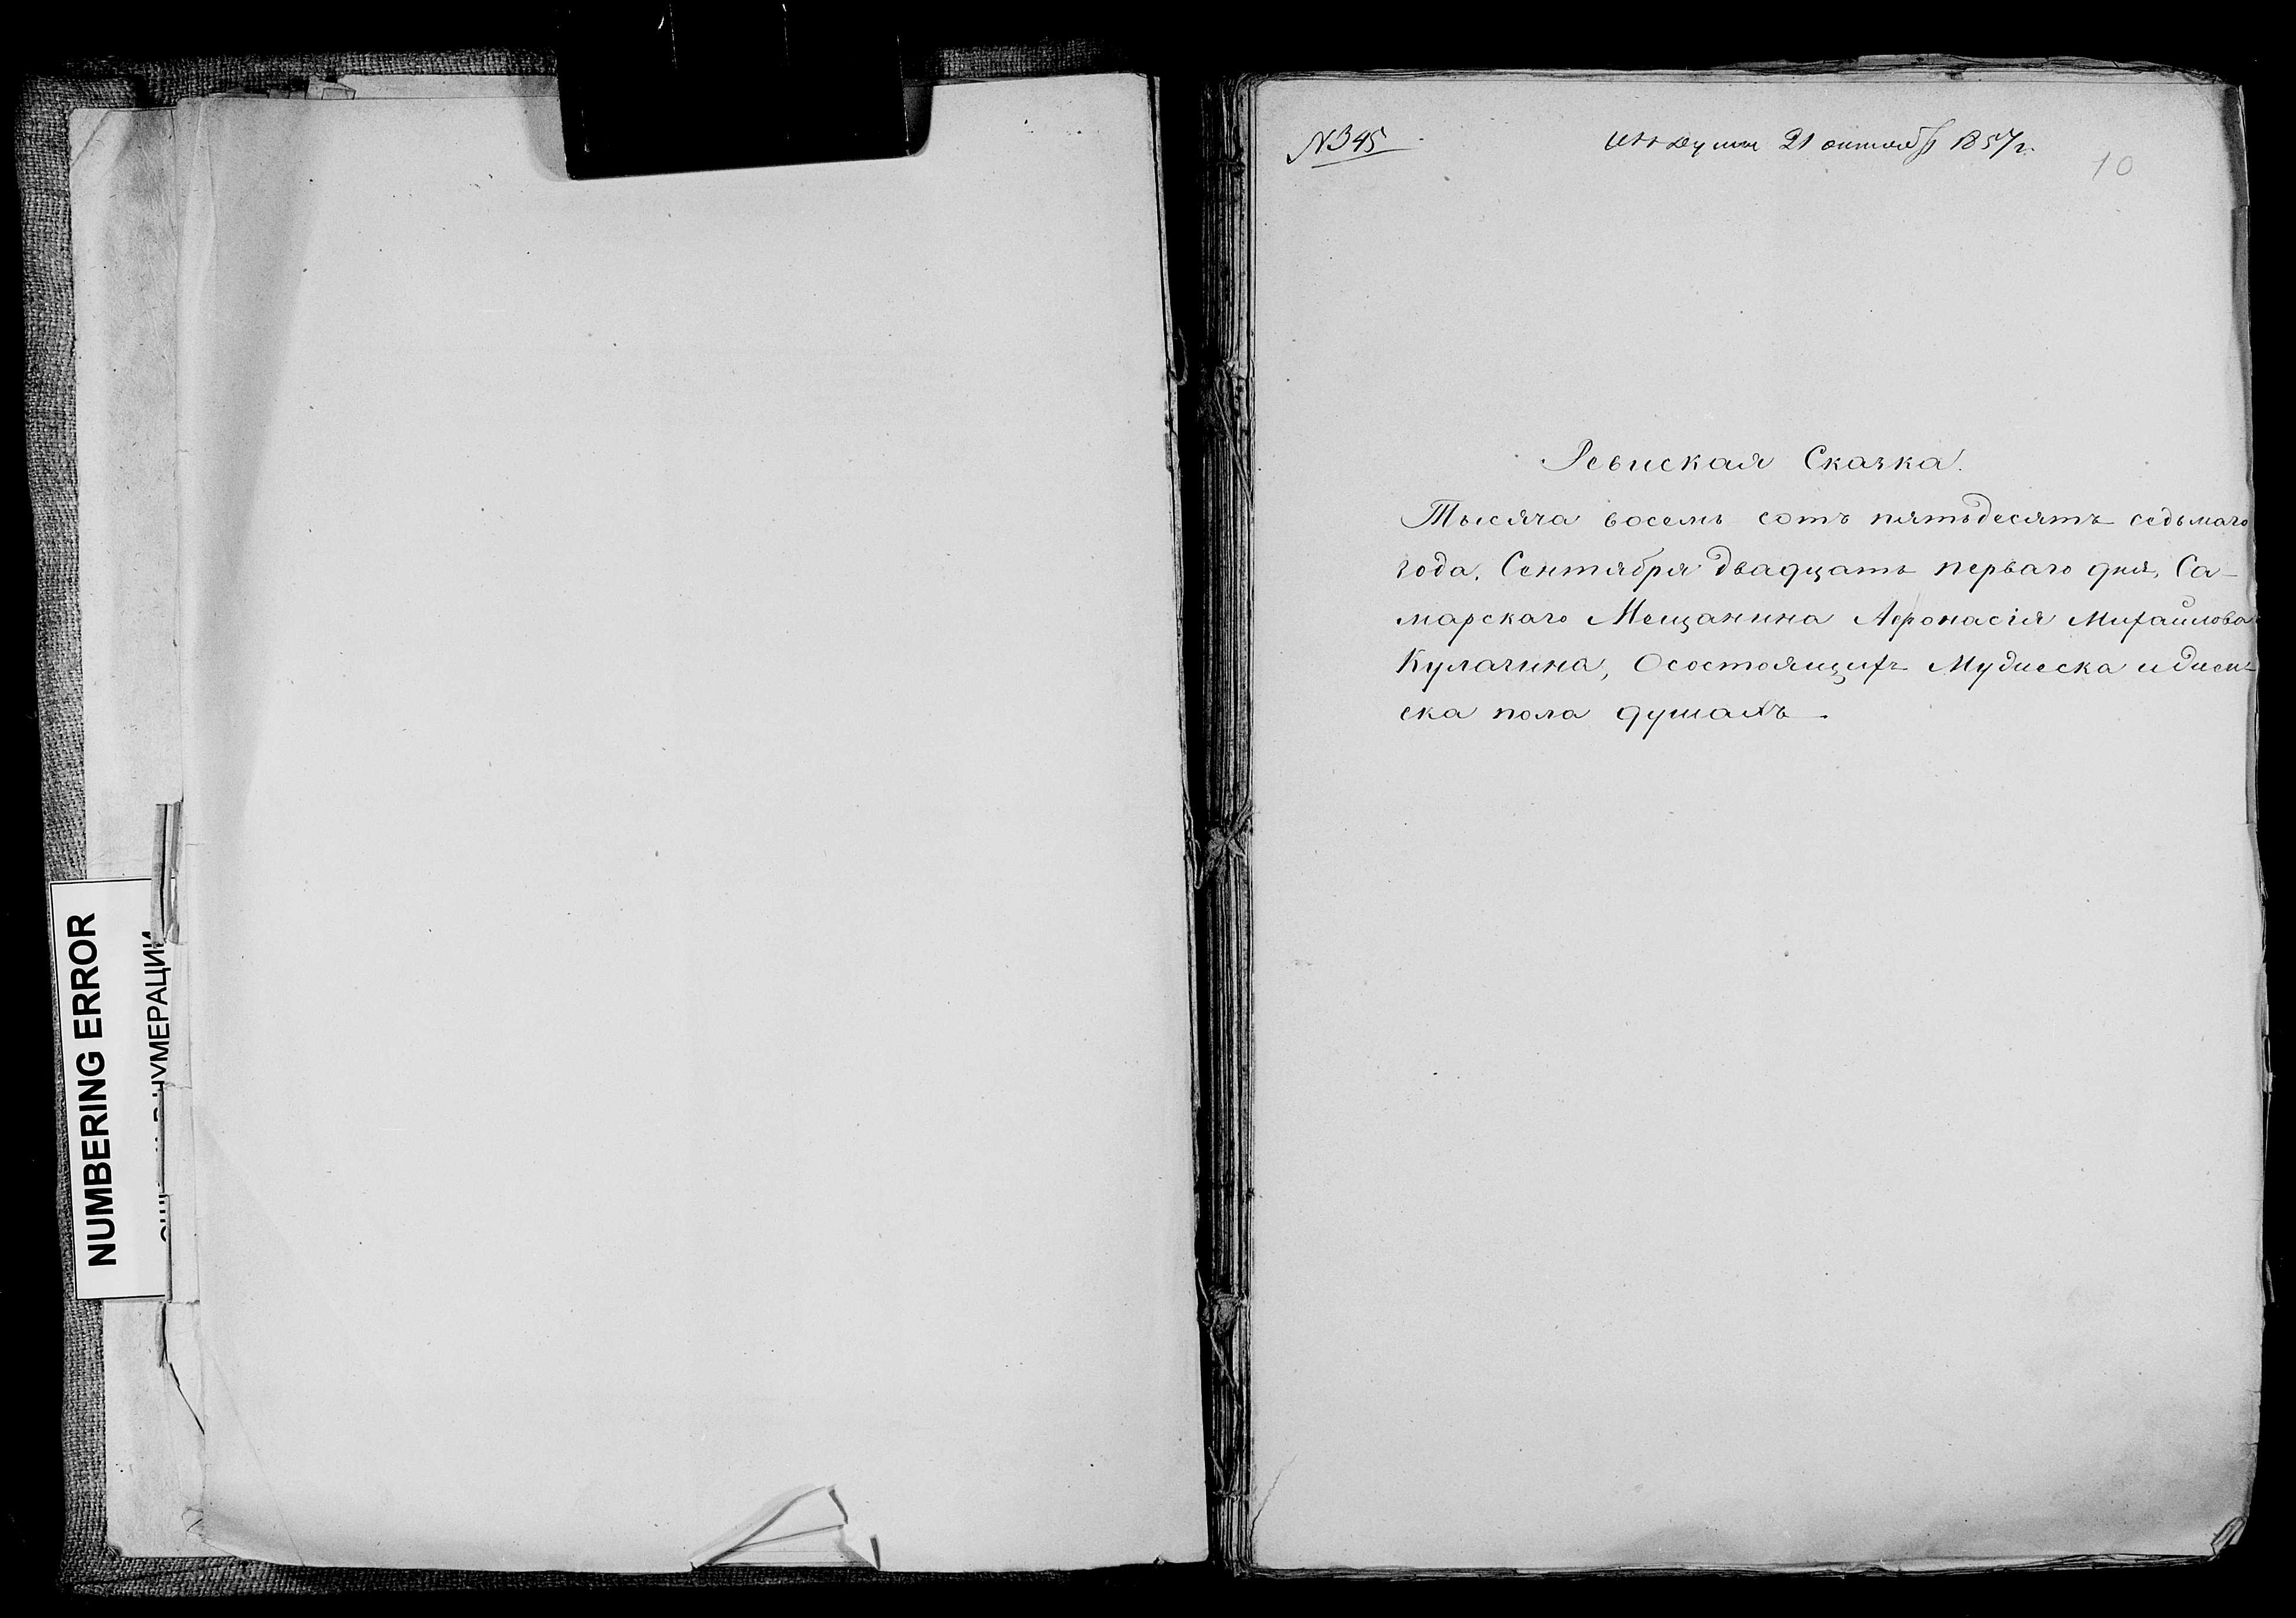 NUMBERING ERROR
НУМЕРАЦИИ
№ 345
21 октяб 1857 г.
10
Ревиская Скачка.
Тысяча восемь сотъ пятьдесятъ седьмаго
года, Сентября двадцать перваго дня, Са-
марскаго Мещанина Афонасія Михайлова
Кулагина, Осостоящихъ Мудиска идиен-
ска пола душахъ.